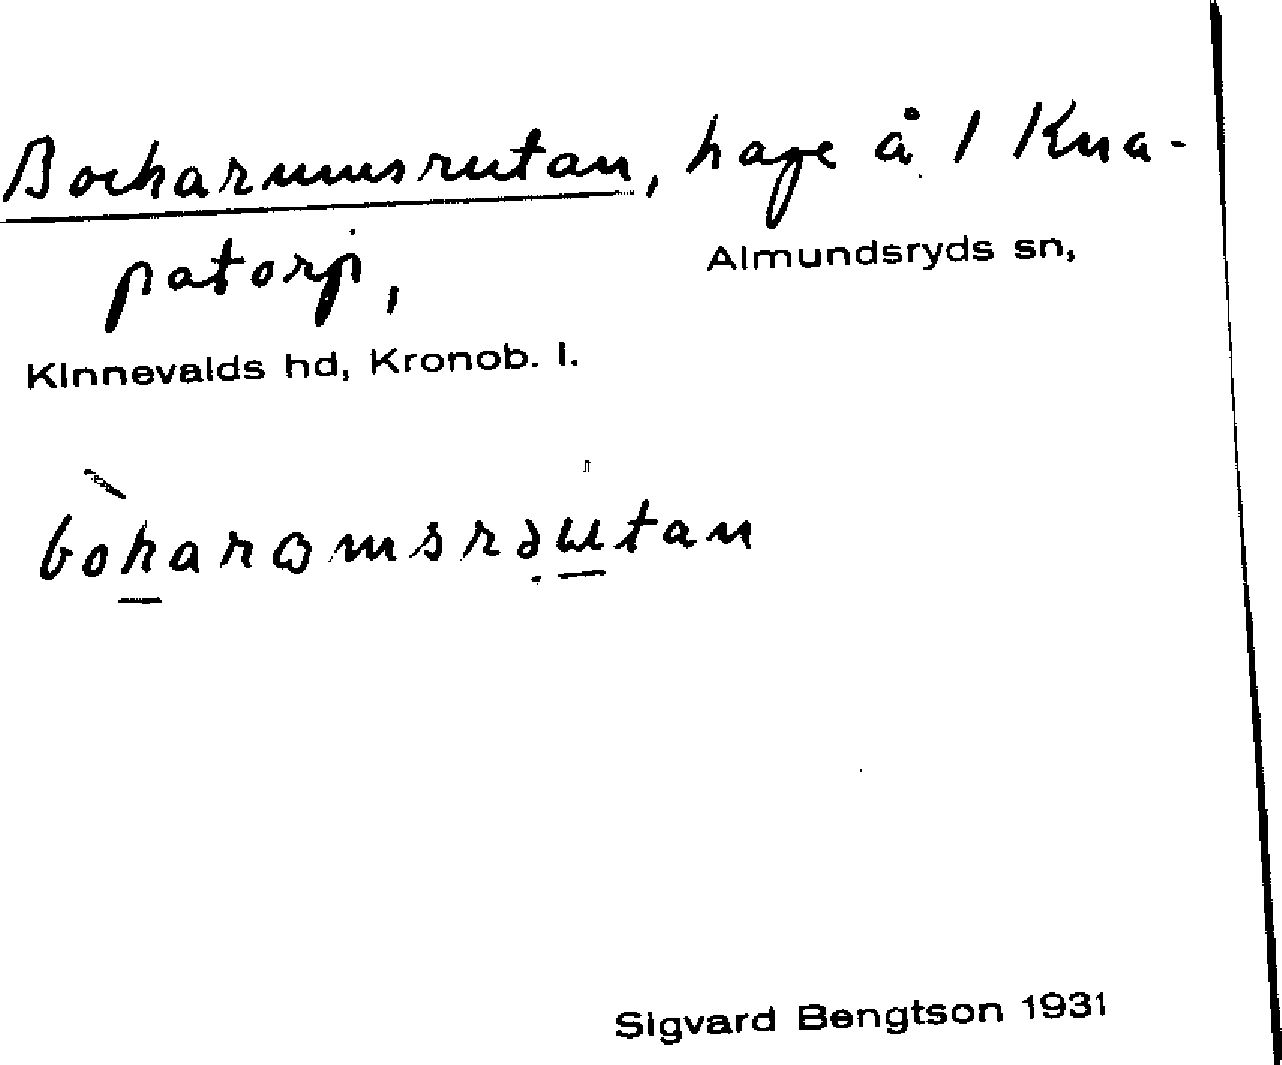 Bockarumsrutan, hage å 1 Kna-
patorp,
Almundsryds sn,
Kinnevalds hd, Kronob. l.
Sigvard Bengtson 1931